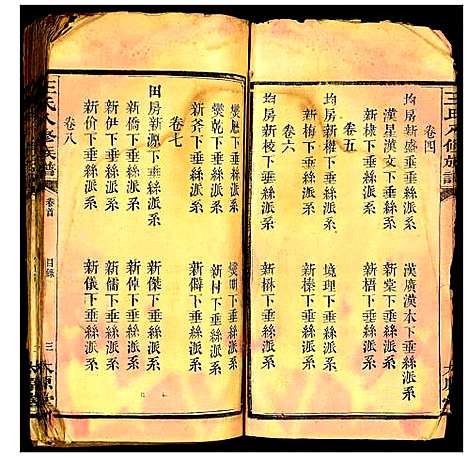 王氏八修族譜
卷四
均房新盛下垂絲派系
漢廣漢本下垂絲派系
漢星漢文下垂絲派系
新堂下垂絲派系
卷五
新桂下垂絲派系
新梧下垂絲派系
新梅下垂絲派系
境理下垂絲派系
卷六
均房新稜下垂絲派系
新槑下垂絲派系
燮勳下垂絲派系
燮明下垂絲派系
燮乾下垂絲派系
新村下垂絲派系
新斧下垂絲派系
新僻下垂絲派系
卷七
田房新源下垂絲派系
新傑下垂絲派系
新僑下垂絲派系
新倬下垂絲派系
新伊下垂絲派系
新儒下垂絲派系
新价下垂絲派系
新儀下垂絲派系
卷八
王氏八修族譜
卷首
目錄
三
太原堂